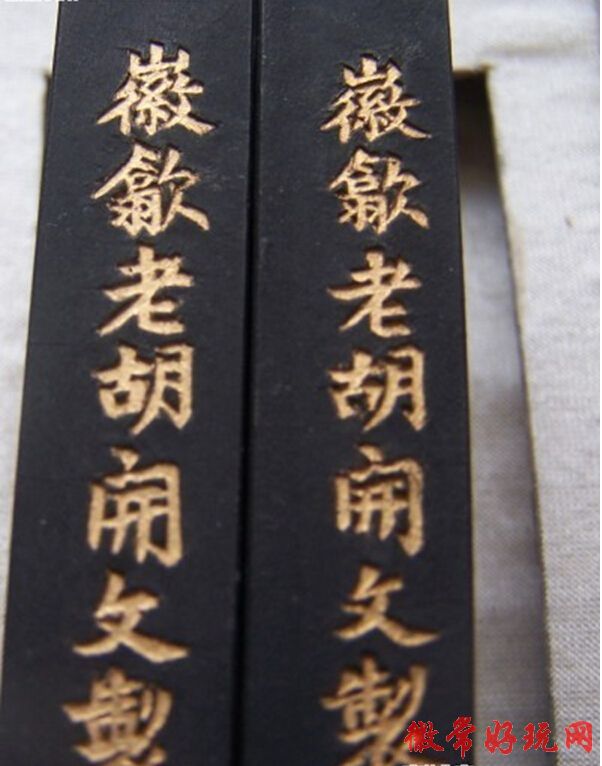 徽歙老胡開文製
徽歙老胡開文製
徽常好玩网